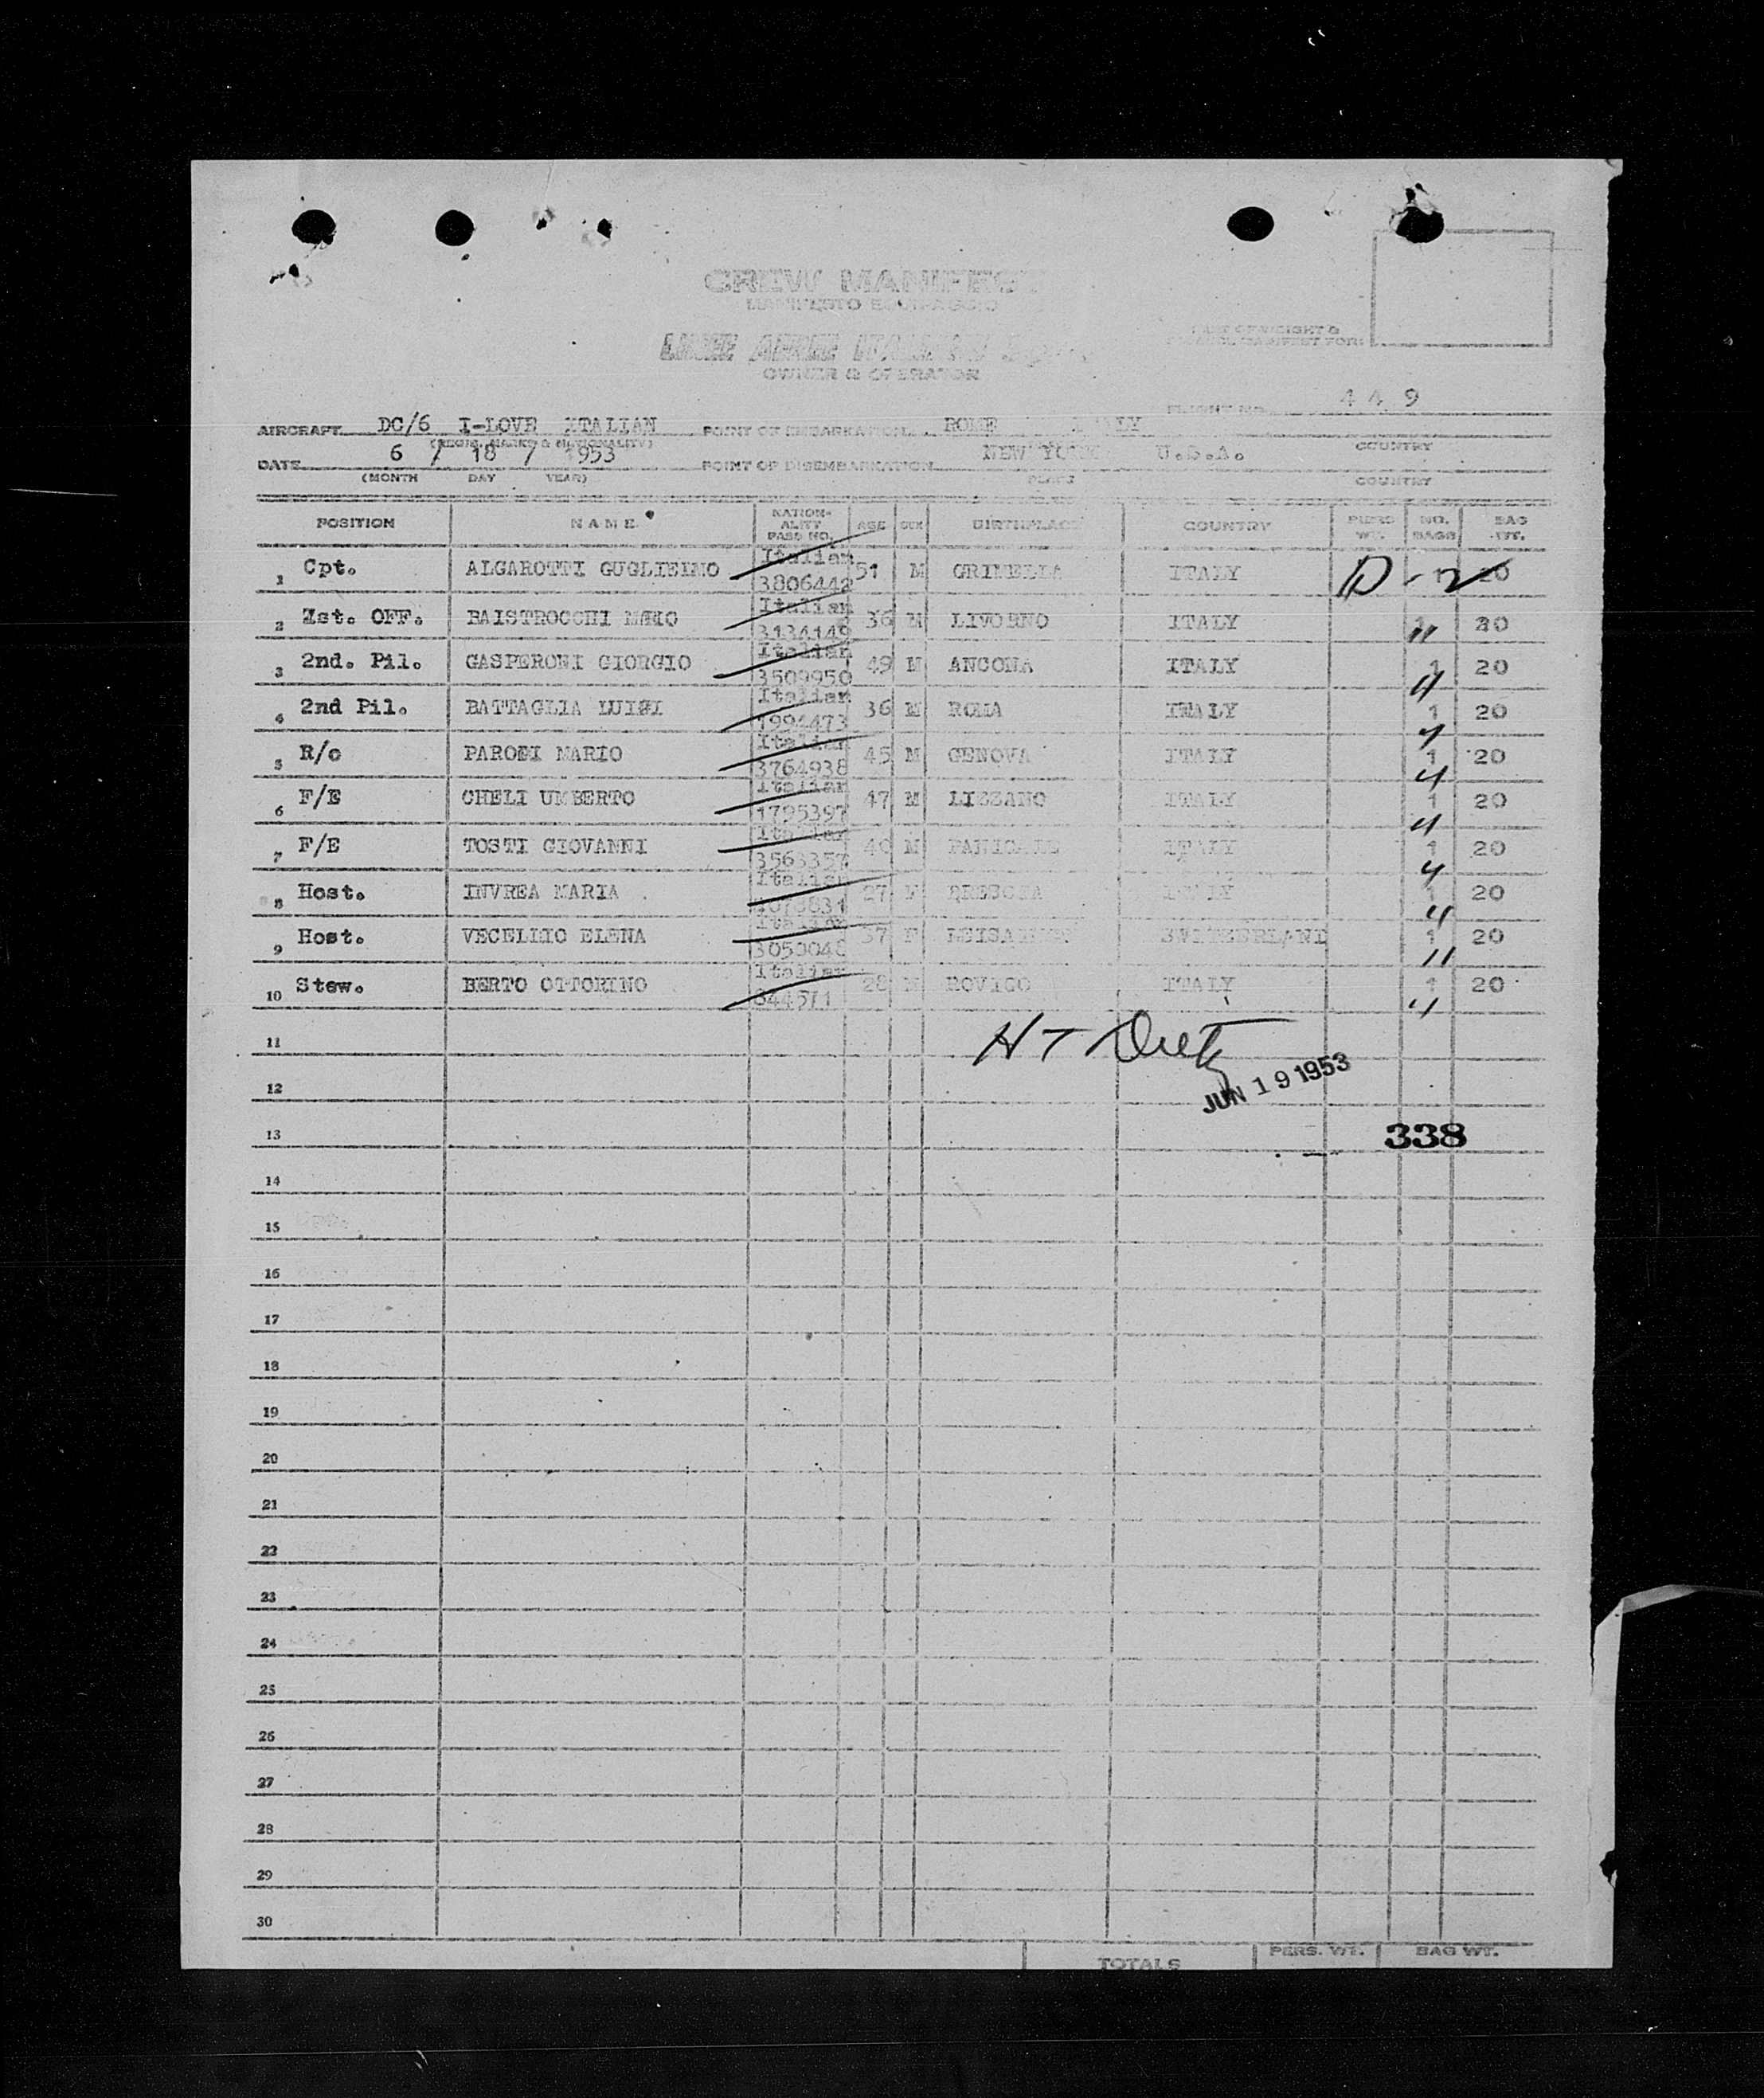 CREW MANIFEST
MANIFESTO EQUIPAGGIO
LINEE AEREE ITALIANE S.p.A.
OWNER & OPERATOR
FLIGHT NO. 449
AIRCRAFT DC/6 I-LOVE ITALIAN POINT OF EMBARKATION ROME ITALY
(REGIS. MARKS & NATIONALITY) COUNTRY
DATE 6 / 18 / 1953 POINT OF DISEMBARKATION NEW YORK U.S.A.
(MONTH DAY YEAR) PLACE COUNTRY
POSITION NAME NATION-ALITY PASS NO. AGE SEX BIRTHPLACE COUNTRY PERS WT. NO. BAGS BAG WT.
1 Cpt. ALGAROTTI Italian 3806442 51 M ITALY D-2 1 20
2 Ist. OFF. BAISTROCCHI Italian 3134149 36 M LIVORNO ITALY 1 " 20
3 2nd. Pil. GASPERONI GIORGIO Italian 3509950 49 M ANCONA ITALY 1 " 20
4 2nd Pil. BATTAGLIA LUIGI Italian 1994473 36 M ROMA ITALY 1 " 20
5 R/o MARIO Italian 3764938 45 M GENOVA ITALY 1 " 20
6 F/E CHELI UMBERTO Italian 1795397 47 M LIZZANO ITALY 1 " 20
7 F/E TOSTI GIOVANNI Italian 3563357 M ITALY 1 " 20
8 Host. INVREA MARIA Italian 27 F BRESCIA ITALY 1 " 20
9 Host. ELENA Italian 37 F SWITZERLAND 1 " 20
10 Stew. BERTO OTTORINO Italian 644571 28 M ROVIGO ITALY 1 " 20
11
JUN 19 1953
12
13 338
14
15
16
17
18
19
20
21
22
23
24
25
26
27
28
29
30
TOTALS PERS. WT. BAG WT.